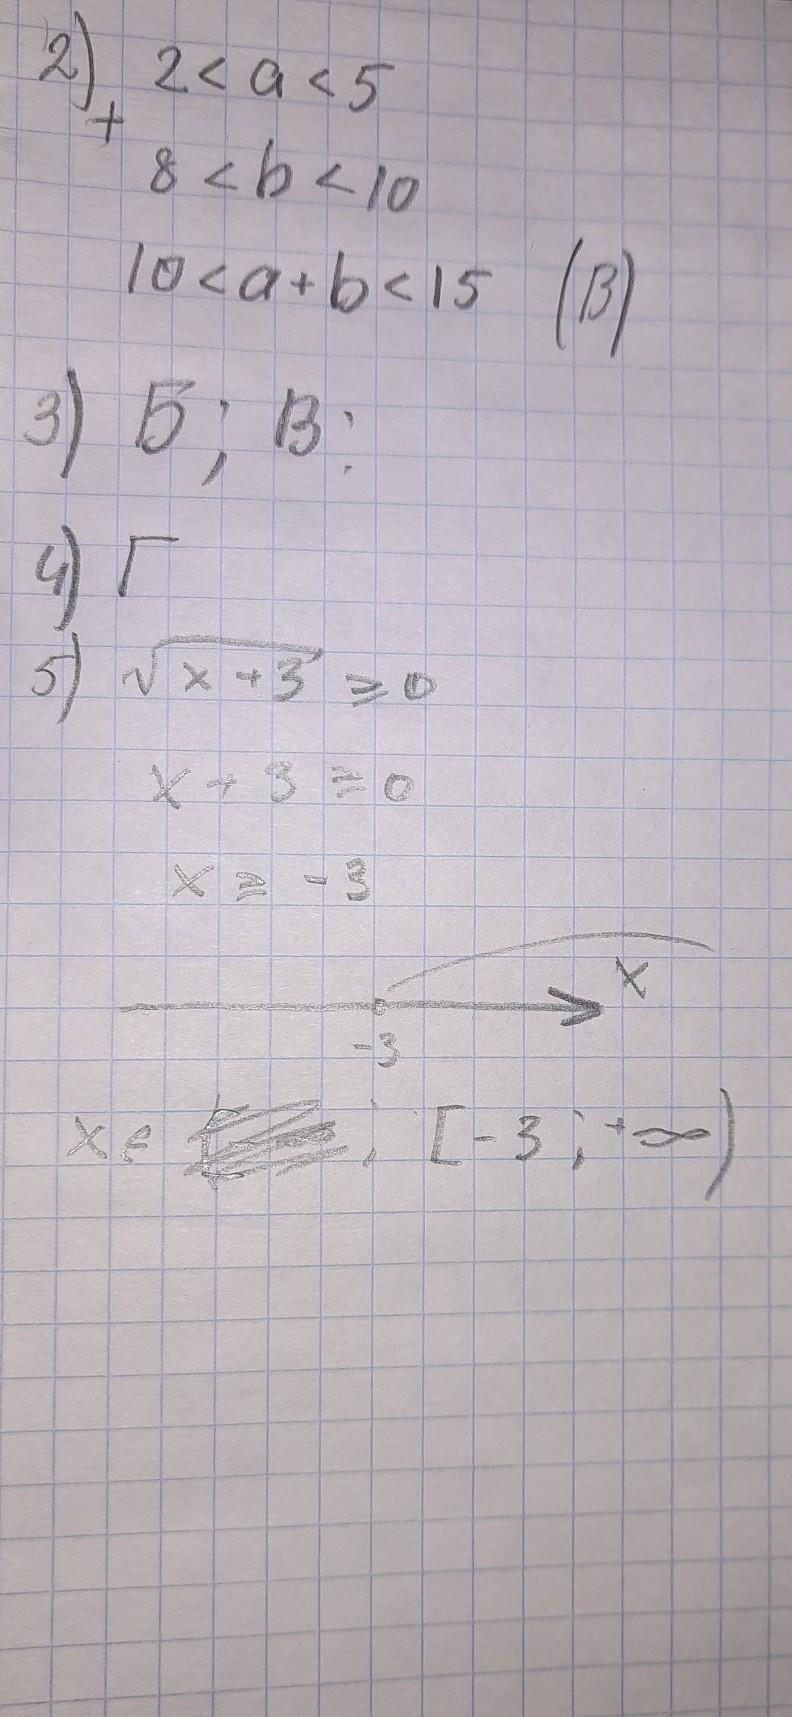 2) 2 < a < 5
+
8 < b < 10
10 < a + b < 15 (В)
3) Б; В;
4) Г
5) √x + 3 ≥ 0
x + 3 ≥ 0
x ≥ -3
x
-3
x ∈ ; [-3; +∞)